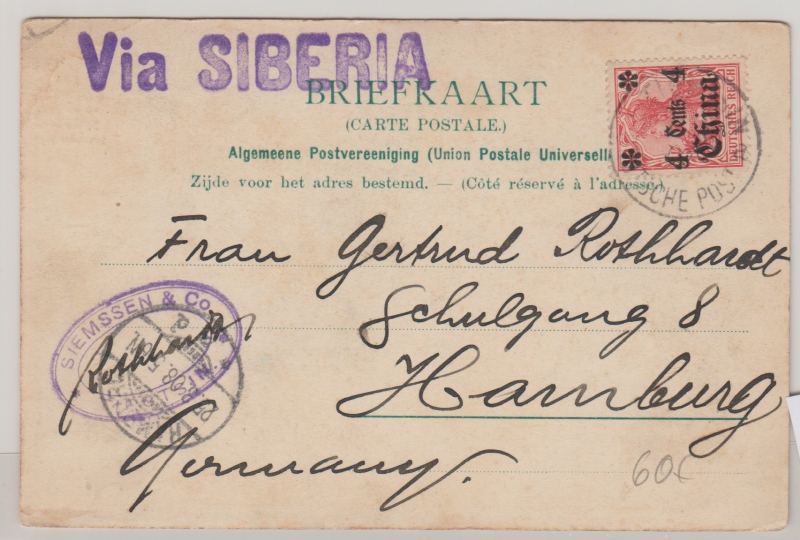 Via SIBERIA
BRIEFKAART
(CARTE POSTALE.)
Algemeene Postvereeniging (Union Postale Universelle
Zijde voor het adres bestemd. — (Côté réservé à l'adresse.)
4 Cents 4
China
DEUTSCHES REICH
SCHE POST
Frau Gertrud Rothhardt
Schulgang 8
Hamburg
Germany.
SIEMSSEN & Co.
Rothhardt
60€